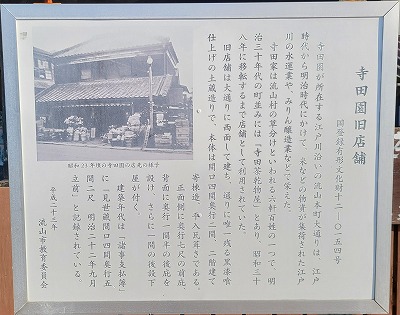 寺田園旧店舗
国登録有形文化財十二―〇一五四号
寺田園が所在する江戸川沿いの流山本町大通りは、江戸
時代から明治時代にかけて、米などの物資が集荷された江戸
川の水運業や、みりん醸造業などで栄えた。
寺田家は流山村の草分けといわれる六軒百姓の一つで、明
治三十年代の町並みには「寺田茶乾物屋」とあり、昭和三十
八年に移転するまで店舗として利用されていた。
旧店舗は大通りに西面して建ち、通りに唯一残る黒漆喰
仕上げの土蔵造りで、本体は間口四間奥行二間、二階建て
寄棟造、平入瓦葺きである。
正面側に奥行七尺の前庇、
背面に奥行一間半の後庇を
設け、さらに一間の後設下
屋が付く。
建築年代は「諸事支払簿」
に「見世蔵間口四間奥行五
間二尺 明治二十二年九月
立前」と記録されている。
平成二十二年
流山市教育委員会
昭和23年頃の寺田園の店先の様子